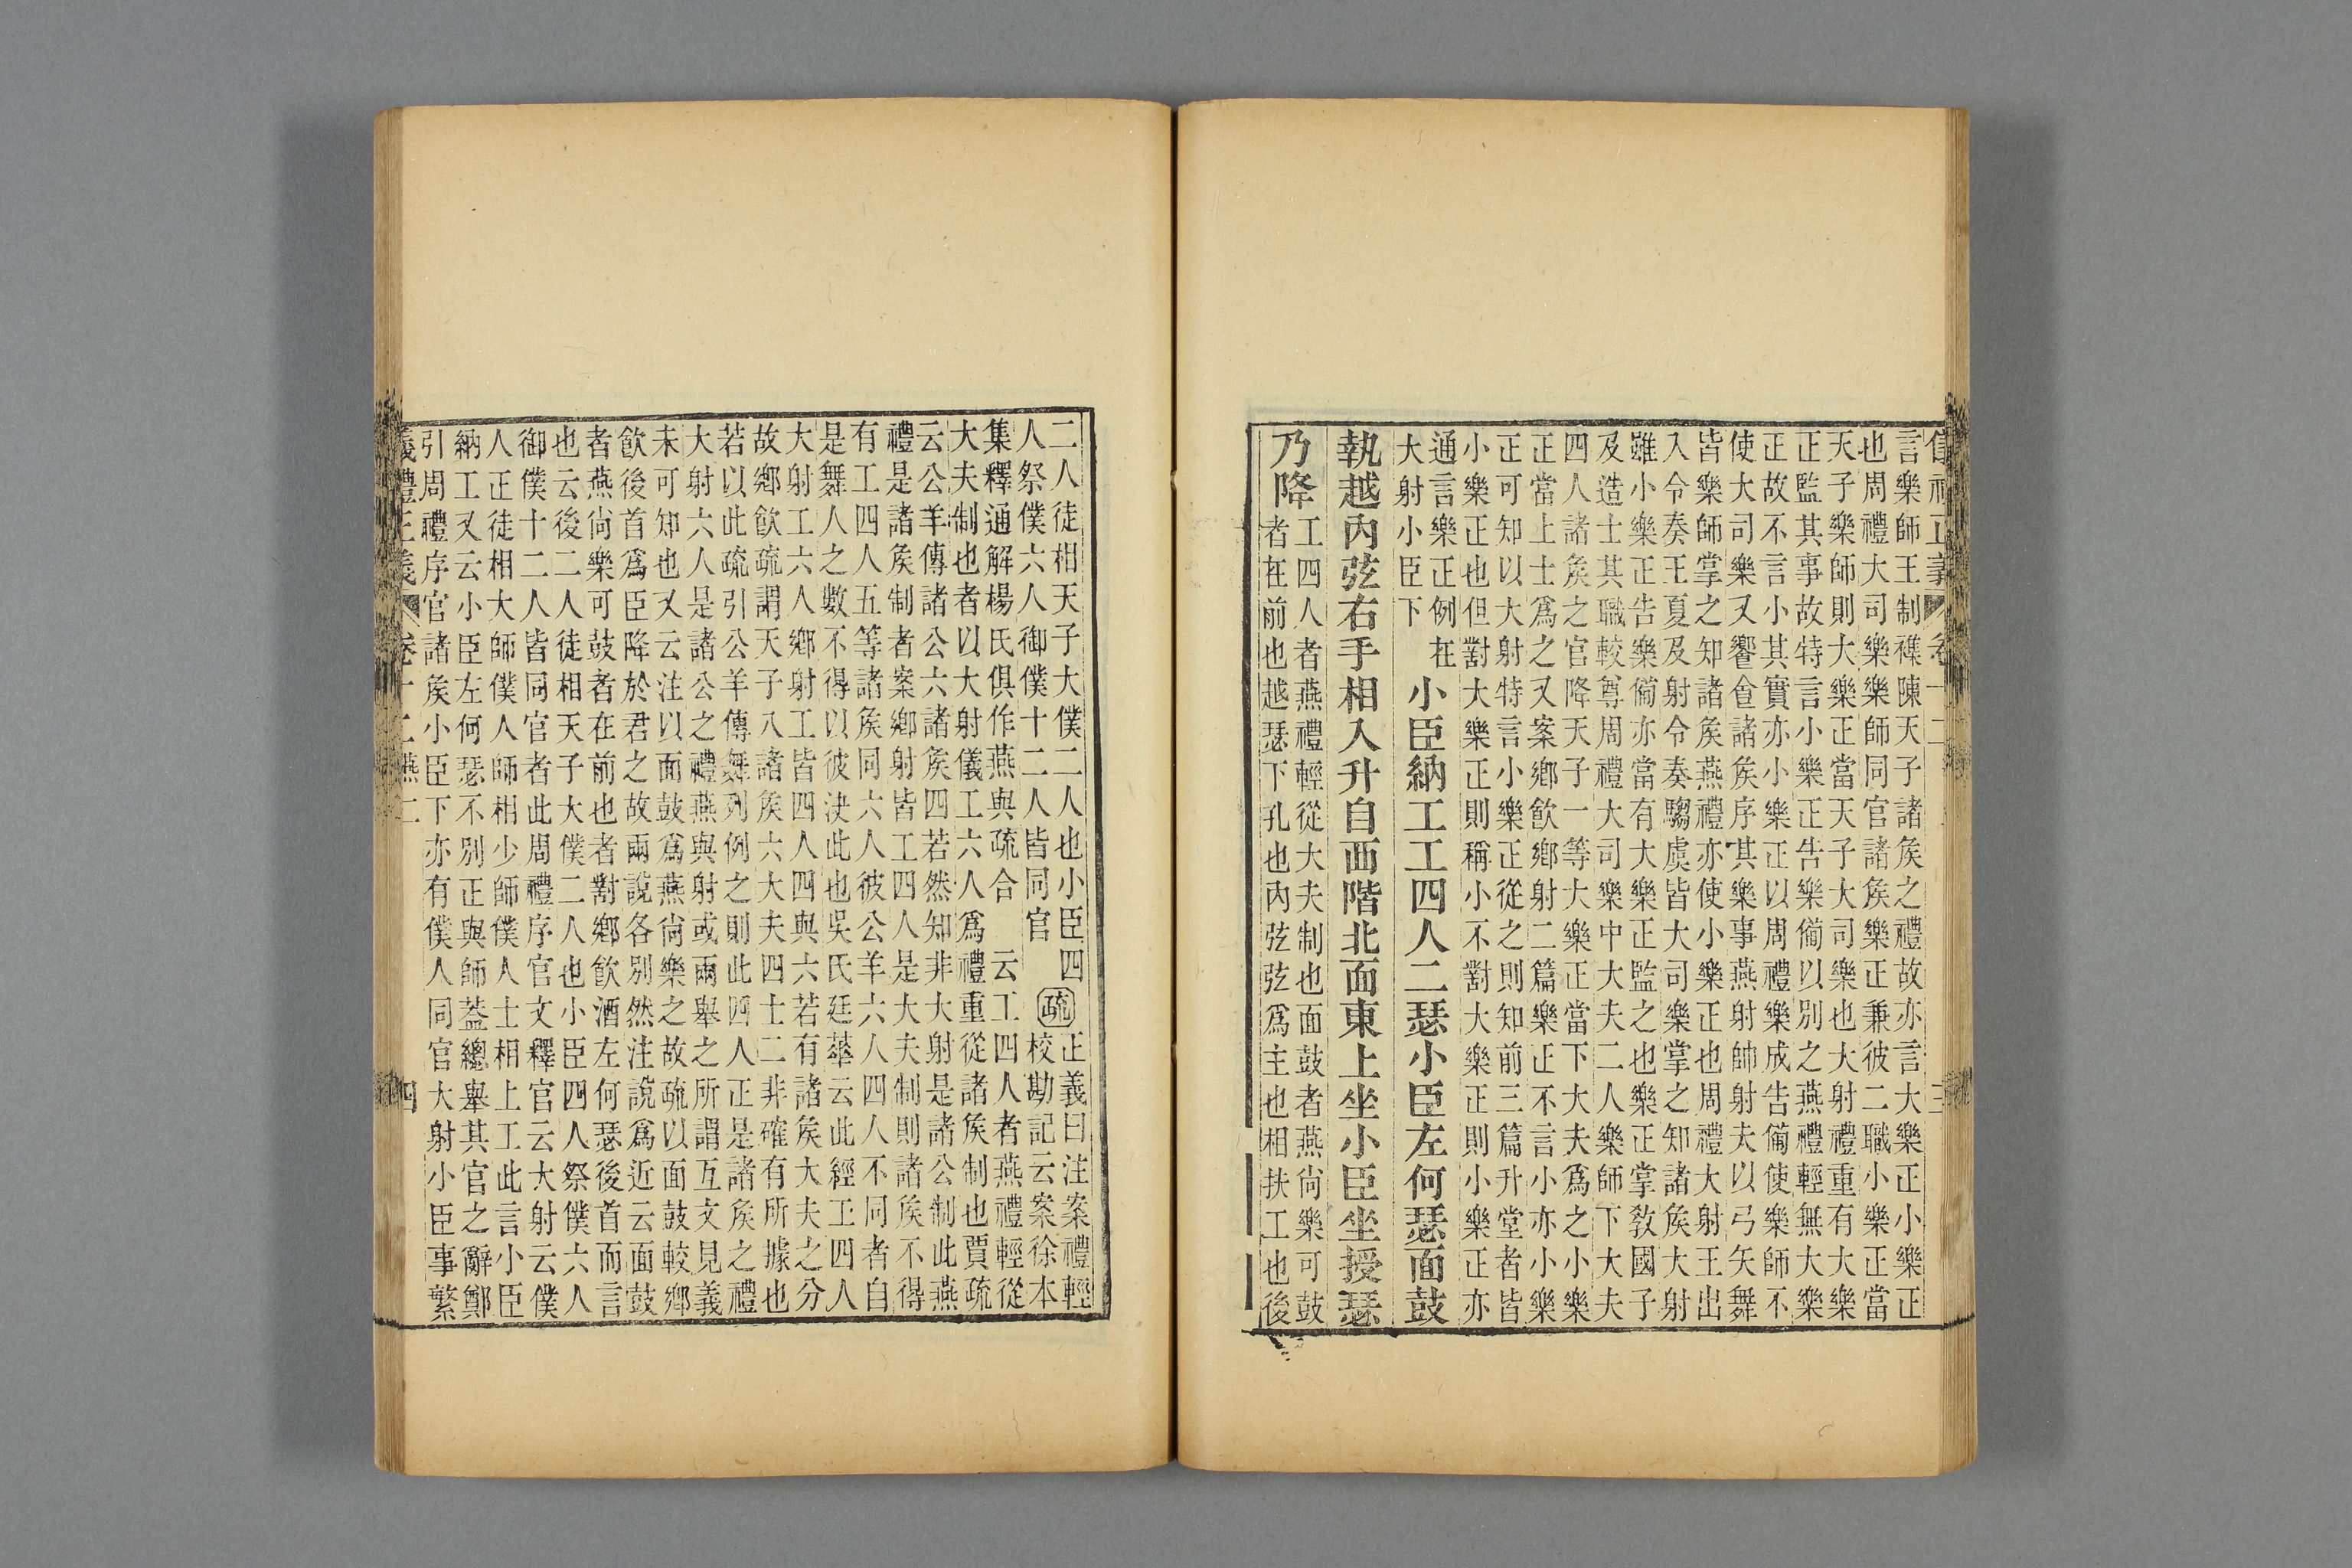 言樂師王制襍陳天子諸矦之禮故亦言大樂正小樂正
也周禮大司樂樂師同官諸矦樂正兼彼二職小樂正當
天子樂師則大樂正當天子大司樂也大射禮重有大樂
正監其事故特言小樂正告樂僃以別之燕禮輕無大樂
正故不言小其實亦小樂正以周禮樂成告僃使樂師不
使大司樂又饗㑹諸矦序其樂事燕射帥射夫以弓矢舞
皆樂師掌之知諸矦燕禮亦使小樂正也周禮大射王出
入令奏王夏及射令奏騶虞皆大司樂掌之知諸矦大射
雖小樂正告樂僃亦當有大樂正監之也樂正掌敎國子
及造士其職較尊周禮大司樂中大夫二人樂師下大夫
四人諸矦之官降天子一等大樂正當下大夫爲之小樂
正當上士爲之又案鄉飮鄉射二篇樂正不言小亦小樂
正可知以大射特言小樂正從之則知前三篇升堂者皆
小樂正也但對大樂正則稱小不對大樂正則小樂正亦
通言樂正例在
大射小臣下
小臣納工工四人二瑟小臣左何瑟面鼓
執越內弦右手相入升自西階北面東上坐小臣坐授瑟
乃降
工四人者燕禮輕從大夫制也面鼓者燕尚樂可鼓
者在前也越瑟下孔也內弦弦爲主也相扶工也後
二人徒相天子大僕二人也小臣四
人祭僕六人御僕十二人皆同官
疏
正義曰注案禮輕
校勘記云案徐本
集釋通解楊氏俱作燕與疏合
云工四人者燕禮輕從
大夫制也者以大射儀工六人爲禮重從諸矦制也賈疏
云公羊傳諸公六諸矦四若然知非大射是諸公制此燕
禮是諸矦制者案鄉射皆工四人是大夫制則諸矦不得
有工四人五等諸矦同六人彼公羊六人四人不同者自
是舞人之數不得以彼決此也吳氏廷華云此經工四人
大射工六人鄉射工皆四人四與六若有諸矦大夫之分
故鄉飮疏謂天子八諸矦六大夫四士二非確有所據也
若以此疏引公羊傳舞列例之則此四人正是諸矦之禮
大射六人是諸公之禮燕與射或兩舉之所謂互文見義
未可知也又云注以面鼓爲燕尚樂之故疏以面鼓較鄉
飮後首爲臣降於君之故兩說各別然注說爲近云面鼓
者燕尚樂可鼓者在前也者對鄉飮酒左何瑟後首而言
也云後二人徒相天子大僕二人也小臣四人祭僕六人
御僕十二人皆同官者此周禮序官文釋官云大射云僕
人正徒相大師僕人師相少師僕人士相上工此言小臣
納工又云小臣左何瑟不別正與師蓋總舉其官之辭鄭
引周禮序官諸矦小臣下亦有僕人同官大射小臣事繁